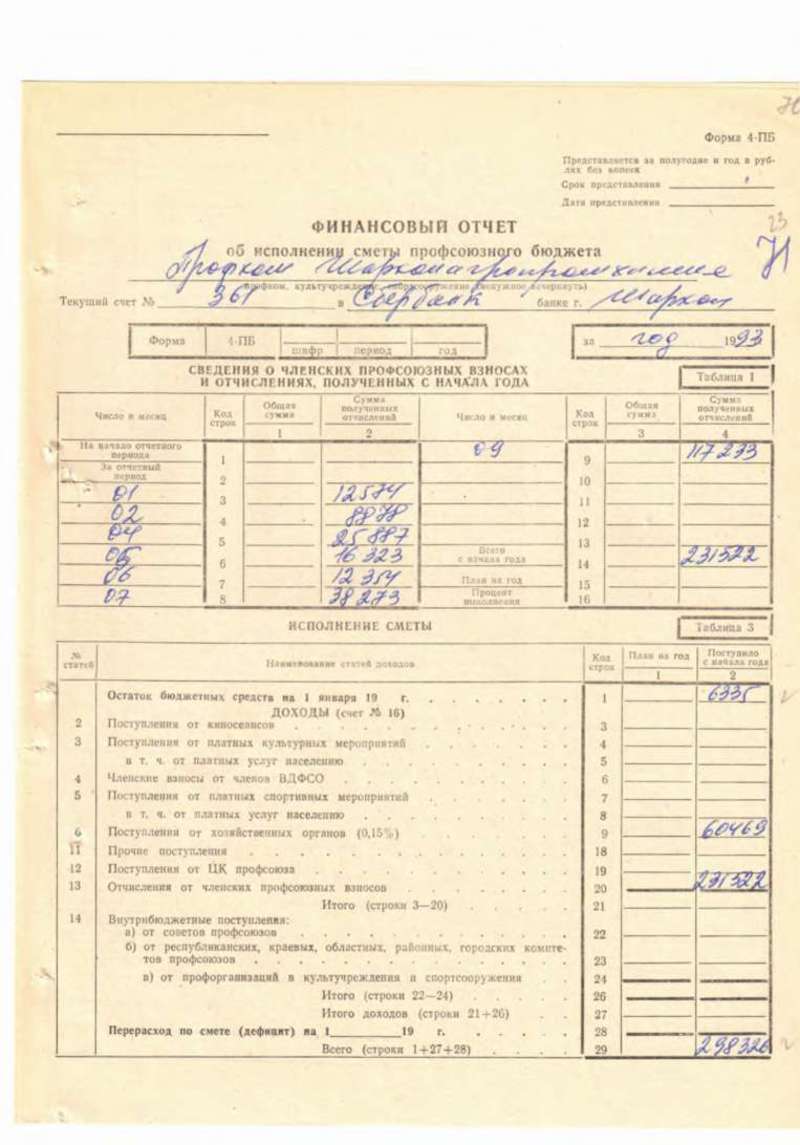 Форма 4-ПБ
Представляется за полугодие и год в руб-
лях без копеек
Срок представления
Дата представления
23
ФИНАНСОВЫЙ ОТЧЕТ
об исполнении сметы профсоюзного бюджета
Профком Шарканагропромхимия
профком, культучреждение, (ненужное зачеркнуть)
Текущий счет № 361 в Сбербанк банке г. Шаркан
Форма 4-ПБ шифр период год
за год 1993
СВЕДЕНИЯ О ЧЛЕНСКИХ ПРОФСОЮЗНЫХ ВЗНОСАХ
И ОТЧИСЛЕНИЯХ, ПОЛУЧЕННЫХ С НАЧАЛА ГОДА
Таблица 1
Число и месяц Код строк Общая сумма Сумма полученных отчислений Число и месяц Код строк Общая сумма Сумма полученных отчислений
1 2 3 4
На начало отчетного периода 1 09 9 117 233
За отчетный период 2 10
01 3 12574 11
02 4 8878 12
04 5 25 887 13
05 6 16 323 Всего с начала года 14 231522
06 7 12 354 План на год 15
07 8 38 273 Процент выполнения 16
ИСПОЛНЕНИЕ СМЕТЫ
Таблица 3
№ статей Наименование статей доходов Код строк План на год Поступило с начала года
1 2
Остаток бюджетных средств на 1 января 19 г. 1 6335
ДОХОДЫ (счет № 16)
2 Поступления от киносеансов 3
3 Поступления от платных культурных мероприятий 4
в т. ч. от платных услуг населению 5
4 Членские взносы от членов ВДФСО 6
5 Поступления от платных спортивных мероприятий 7
в т. ч. от платных услуг населению 8
6 Поступления от хозяйственных органов (0,15%) 9 60469
11 Прочие поступления 18
12 Поступления от ЦК профсоюза 19
13 Отчисления от членских профсоюзных взносов 20 231522
Итого (строки 3—20) 21
14 Внутрибюджетные поступления:
а) от советов профсоюзов 22
б) от республиканских, краевых, областных, районных, городских комите-
тов профсоюзов 23
в) от профорганизаций в культучреждения и спортсооружения 24
Итого (строки 22—24) 26
Итого доходов (строки 21+26) 27
Перерасход по смете (дефицит) на 1 19 г. 28
Всего (строки 1+27+28) 29 298326